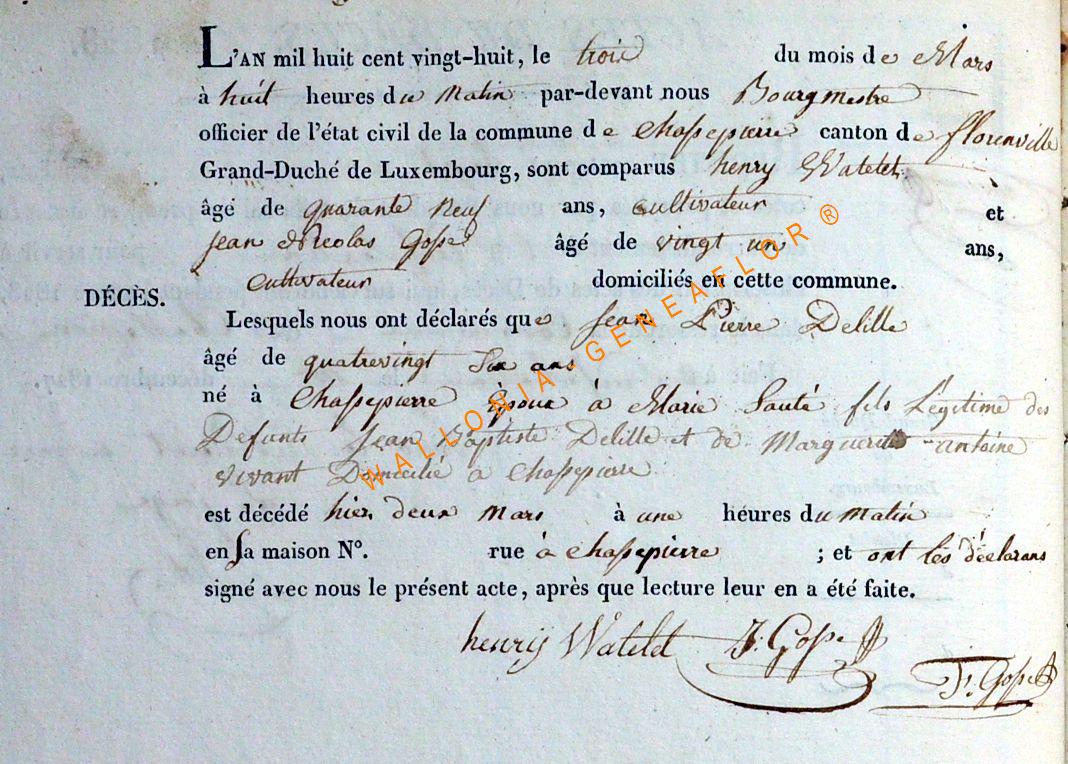 L'AN mil huit cent vingt-huit, le trois du mois de Mars
à huit heures du Matin par-devant nous Bourgmestre
officier de l'état civil de la commune de Chassepierre canton de florenville
Grand-Duché de Luxembourg, sont comparus henry Watelet
âgé de quarante Neuf ans, Cultivateur et
Jean Nicolas Gosse âgé de vingt un ans,
Cultivateur domiciliés en cette commune.
DÉCÈS.
Lesquels nous ont déclarés que Jean Pierre Delille
âgé de quatrevingt Six ans
né à Chassepierre Époux à Marie Sauté fils Légitime des
Defunts Jean Baptiste Delille et de Marguerite antoine
vivant Domicilié à Chassepierre
est décédé hier deux Mars à une heures du Matin
en Sa maison N°. rue à Chassepierre ; et ont les déclarans
signé avec nous le présent acte, après que lecture leur en a été faite.
henrij Watelet J. Gosse
Gosse
WALLONIA GENEAFLOR ®